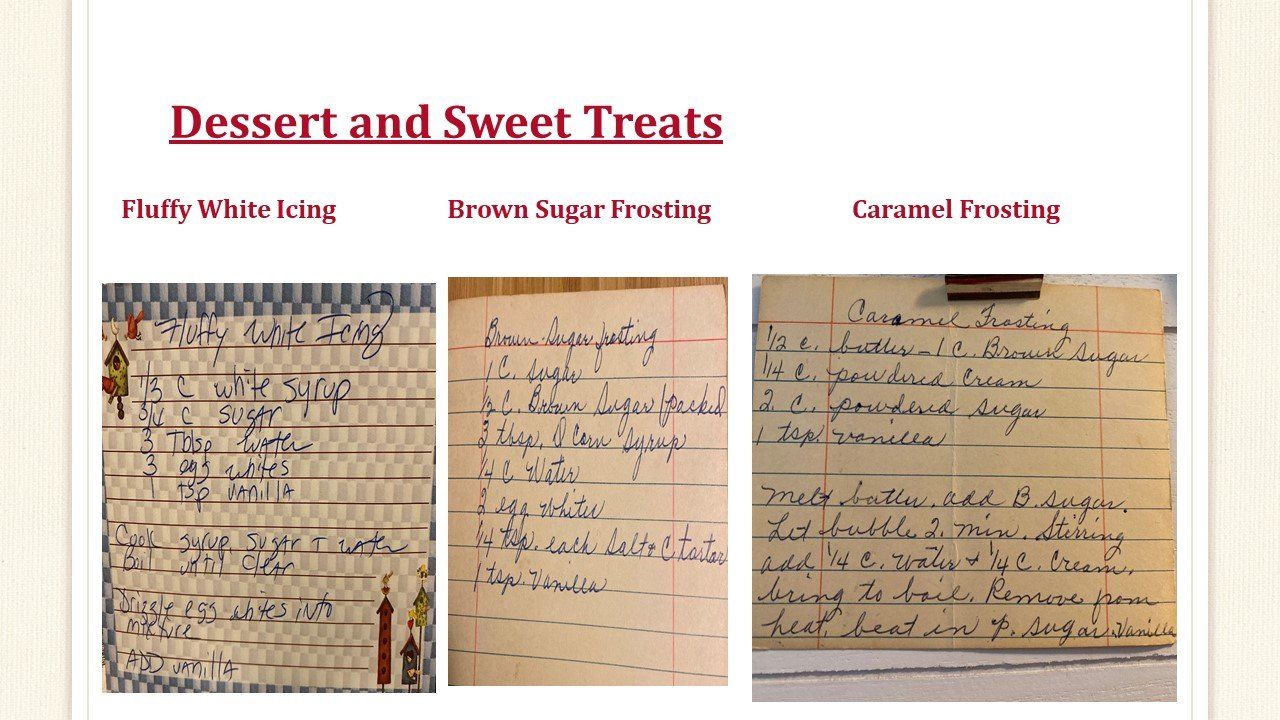 Dessert and Sweet Treats
Fluffy White Icing
Brown Sugar Frosting
Caramel Frosting
Fluffy White Icing
1/3 C white syrup
3/4 C sugar
3 Tblsp water
3 egg whites
1 tsp vanilla
Cook syrup, sugar + water
Boil until clear
Drizzle egg whites into
mixture
ADD vanilla
Brown Sugar frosting
1 C. sugar
1/2 C. Brown Sugar (packed
3 tbsp. D Corn syrup
1/4 C Water
2 egg whites
1/4 tsp. each Salt & C. tartar
1 tsp. Vanilla
Caramel Frosting
1/2 c. butter - 1 C. Brown Sugar
1/4 C. powdered cream
2. C. powdered sugar
1 tsp. vanilla
Melt butter. add B. sugar.
Let bubble 2. min. Stirring
add 1/4 C. water + 1/4 C. Cream.
bring to boil. Remove from
heat, beat in P. sugar. Vanilla